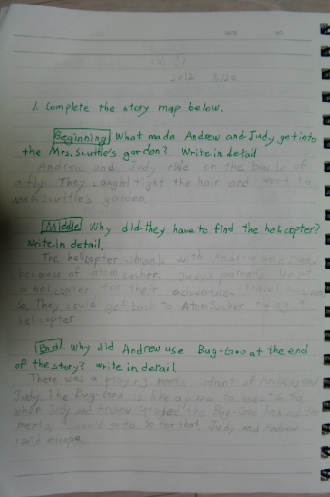 DATE NO.
2012 5/20
1. Complete the story map below.
Beginning What made Andrew and Judy get into
the Mrs. Scuttle's garden? Write in detail
Andrew and Judy ride on the back of
a fly. They caught tight the hair and went to
Mrs. Scuttle's garden.
Middle Why did they have to find the helicopter?
Write in detail.
The helicopter shrank with Andrew and Judy
because of atom sucker. Judy's parents
a helicopter for their adventure travel
So, They could get back to Atom Sucker
helicopter
End. Why did Andrew use Bug-Goo at the end
of the story? Write in detail
There was a praying mantis front of Andrew and
Judy. The Bug-Goo is like a
when Judy and Andrew sprayed the Bug-Goo
So that, Judy and Andrew
could escape.